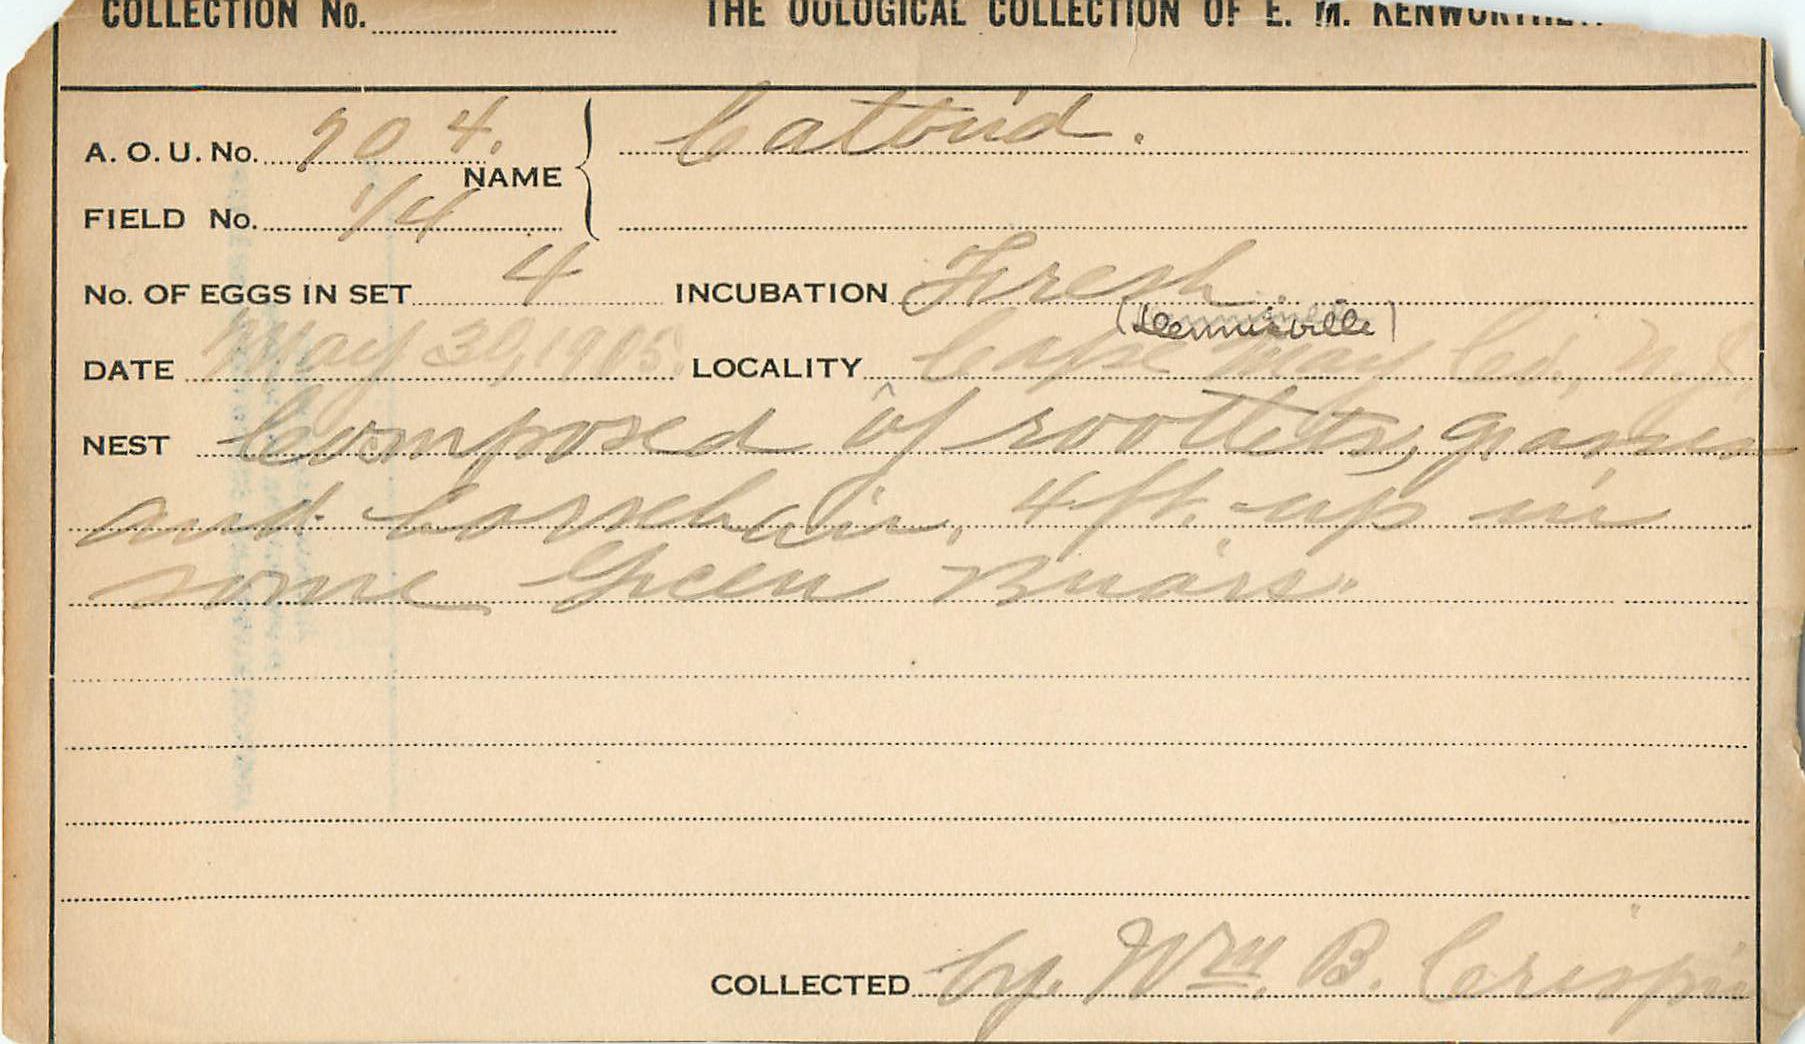 COLLECTION No. THE OOLOGICAL COLLECTION OF E. M. KENWORTHEY.
A. O. U. No. 704. NAME Catbird.
FIELD No. 1/4
No. OF EGGS IN SET 4 INCUBATION Fresh.
(Dennisville)
DATE May 30, 1905. LOCALITY Cape May Co., N.J.
NEST Composed of rootlets, grasses
and horsehair, 4 ft. up in
some Green Briars.
COLLECTED by. Wm. B. Crispin